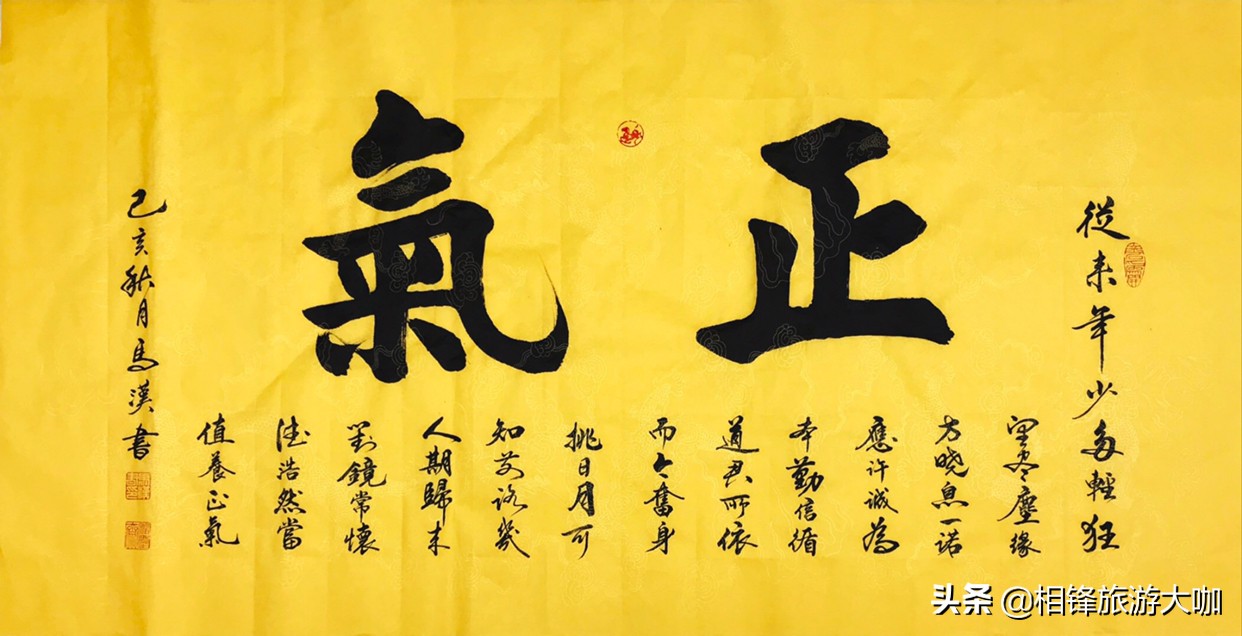 正氣
從来年少多輕狂
望尽塵缘
方晓息一诺
應许诚為
本勤信循
道君所依
而今奮身
挑日月可
知前路幾
人期歸来
對鏡常懷
德浩然當
值養正氣
己亥秋月馬漢書
头条 @相锋旅游大咖